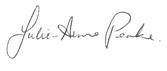 Julie-Anne Peake.